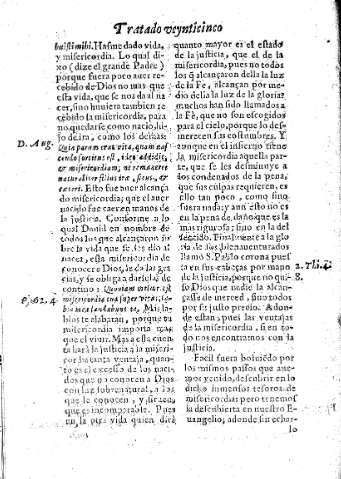 Tratado veynticinco
buisti mihi. Hasme dado vida,
y misericordia. Lo qual di-
xo (dize el grande Padre)
porque fuera poco auer re-
cebido de Dios no mas que
esta vida, que se nos da al na-
cer, sino huuiera tambien re-
cebido la misericordia, para
no quedarse como nacio, hi-
jo de ira, como los demas:
D. Aug.
Quia parum erat vita, quam
nascendo sortitus est, ideo addidit,
& misericordiam, ne remaneret
naturaliter filius iræ, sicut, &
cæteri. Esto fue auer alcança
do misericordia, que el auer
nacido fue caer en manos de
la justicia. Conforme a lo
qual Dauid en nombre de
todos los que alcançaron so-
bre la vida que se les dio al
nacer, esta misericordia de
conocer a Dios, le da las gra-
cias, y se obliga a darselas de
continuo: Quoniam melior est
Ps. 62. 4.
misericordia tua super vitas, la-
bia mea laudabunt te. Mis la-
bios te alabaran, porque tu
misericordia importa mas
que el viuir. Mas a esta cuen-
ta hará la justicia a la miseri-
cordia tanta ventaja, quan-
to es el excesso de los naci-
dos que no conocen a Dios
con luz sobrenatural, a los
que le conocen, y siruen,
que es incomparable. Pues
en la otra vida quien dirá
quanto mayor es el estado
de la justicia, que el de la
misericordia, pues no todos
los q̃ alcançaron della la luz
de la Fè, alcançan por me-
dio della la luz de la gloria:
muchos han sido llamados a
la Fè, que no son escogidos
para el cielo, porque lo des-
merecen sus costumbres. Y
aunque en el infierno tiene
la misericordia aquella par-
te, que se les disminuye a
los condenados de la pena,
que sus culpas requieren, es
esto tan poco, como sino
fuera nada; y aun esto no es
en la pena de daño, que es la
mas rigurosa; sino en la del
sentido. Finalmente a la glo
ria de los bienauenturados
la llamò S. Pablo corona pues
ta en sus cabeças por mano
2. Thi. 4.
de la justicia, porque no qui-
8.
so Dios que nadie la alcan-
çasse de merced, sino todos
por su justo precio. Adon-
de estan, pues, las ventajas
de la misericordia, si en to-
do nos encontramos con la
justicia.
Facil fuera boluiēdo por
los mismos passos que aue-
mos venido, descubrir en lo
dicho inmensos tesoros de
misericordias; pero tenemos
la descubierta en nuestro E-
uangelio, adonde sin echar-
lo